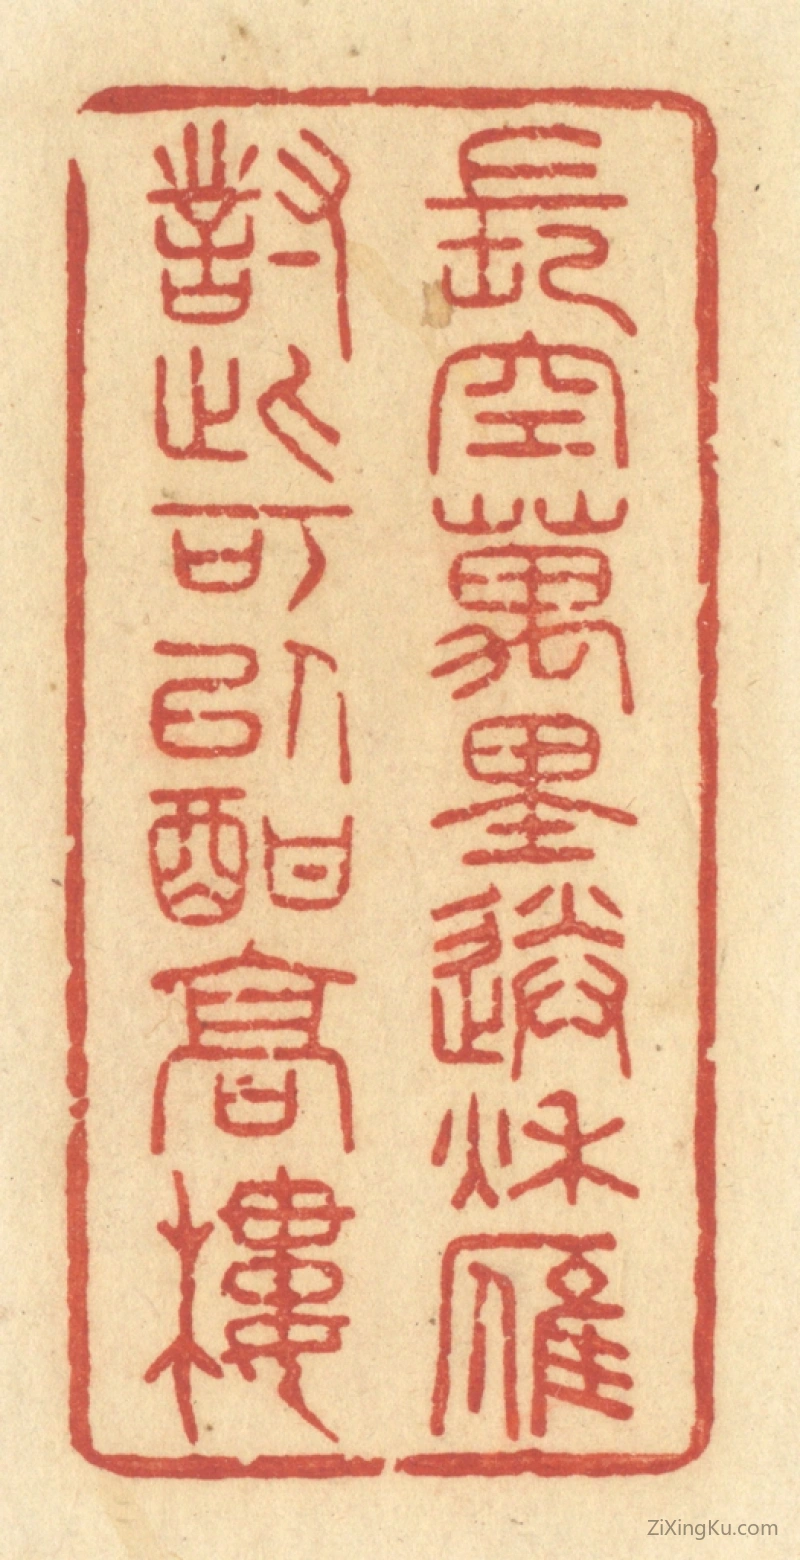 長空萬里送秋雁
對此可以酣高樓
ZiXingKu.com